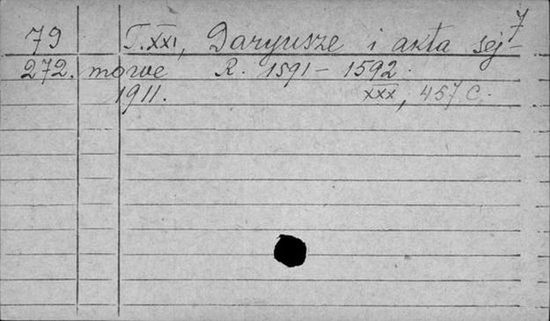 7
79 T. XXI, Daryusze i akta sej-
272. mowe R. 1591 - 1592.
1911. XXX, 457 C.